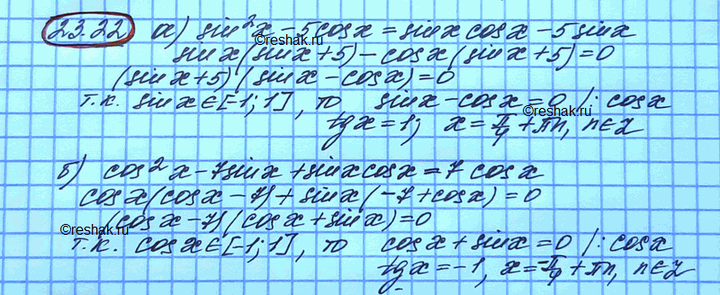 23.22 а) sin²x - 5cosx = sinx cosx - 5sinx
sinx(sinx+5) - cosx(sinx+5) = 0
(sinx+5)(sinx-cosx)=0
т.к. sinx∈[-1;1], то sinx-cosx=0 |:cosx
tgx=1; x=π/4+πn, n∈Z
б) cos²x-7sinx+sinxcosx=7cosx
cosx(cosx-7)+sinx(-7+cosx)=0
(cosx-7)(cosx+sinx)=0
т.к. cosx∈[-1;1], то cosx+sinx=0 |:cosx
tgx=-1, x=-π/4+πn, n∈Z
©reshak.ru
©reshak.ru
©reshak.ru
©reshak.ru